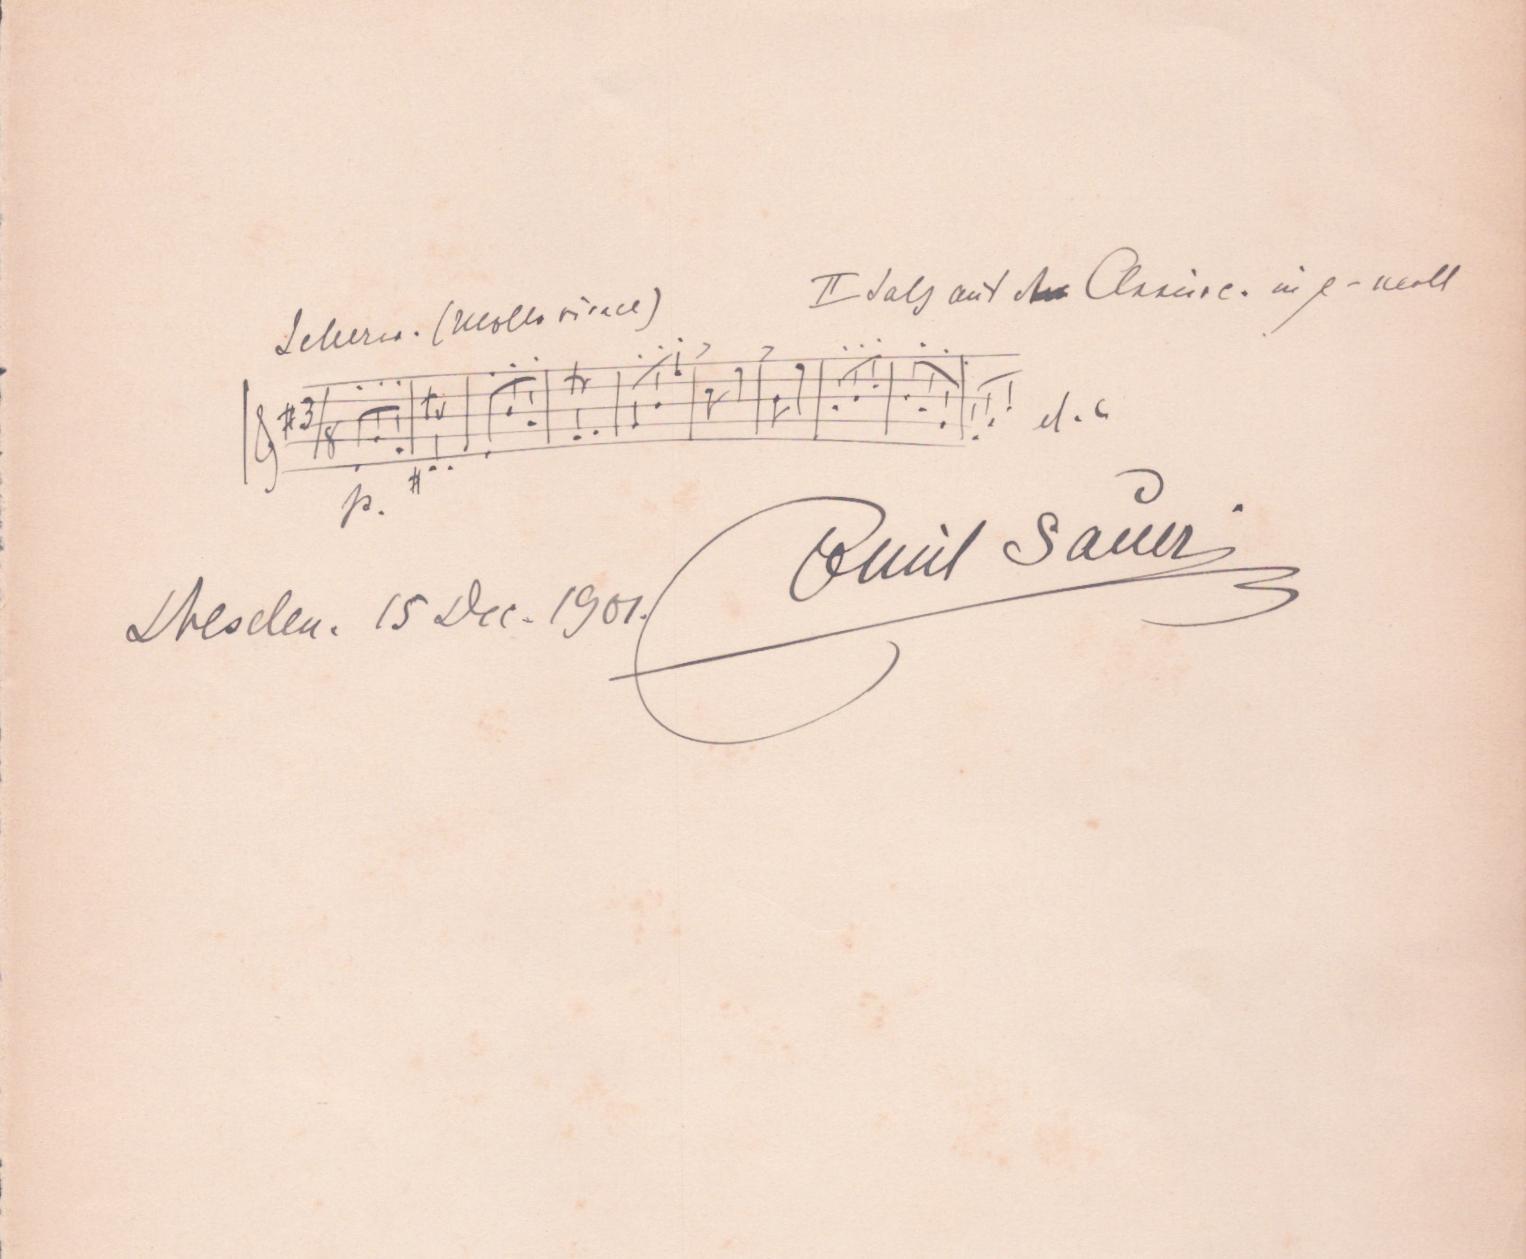 Scherzo. (Molto vivace)
II Satz aus dem Clavierc. in e-moll
3/8
p.
etc
Emil Sauer
Dresden. 15 Dec. 1901.